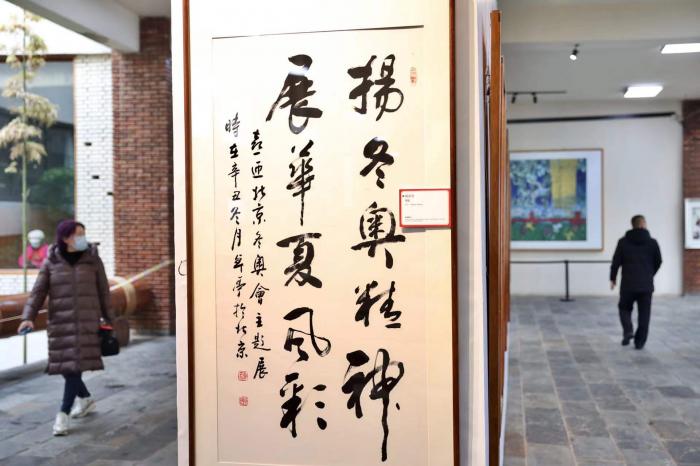 揚冬奥精神
展華夏風彩
喜迎北京冬奥會主題展
時在辛丑冬月
於北京